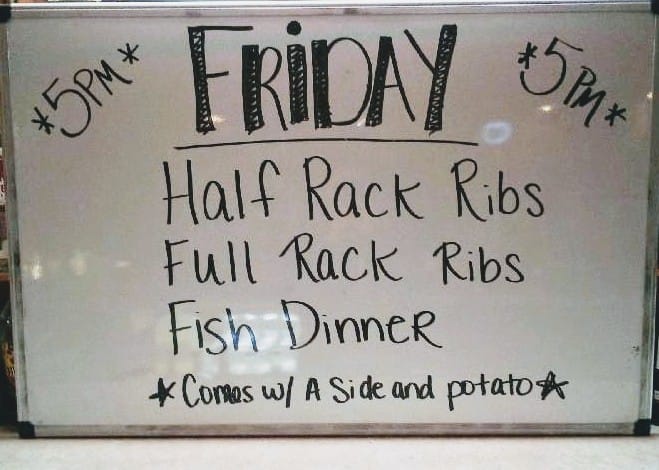 *5PM* FRiDAY *5PM*
Half Rack Ribs
Full Rack Ribs
Fish Dinner
*Comes w/ A Side and potato*